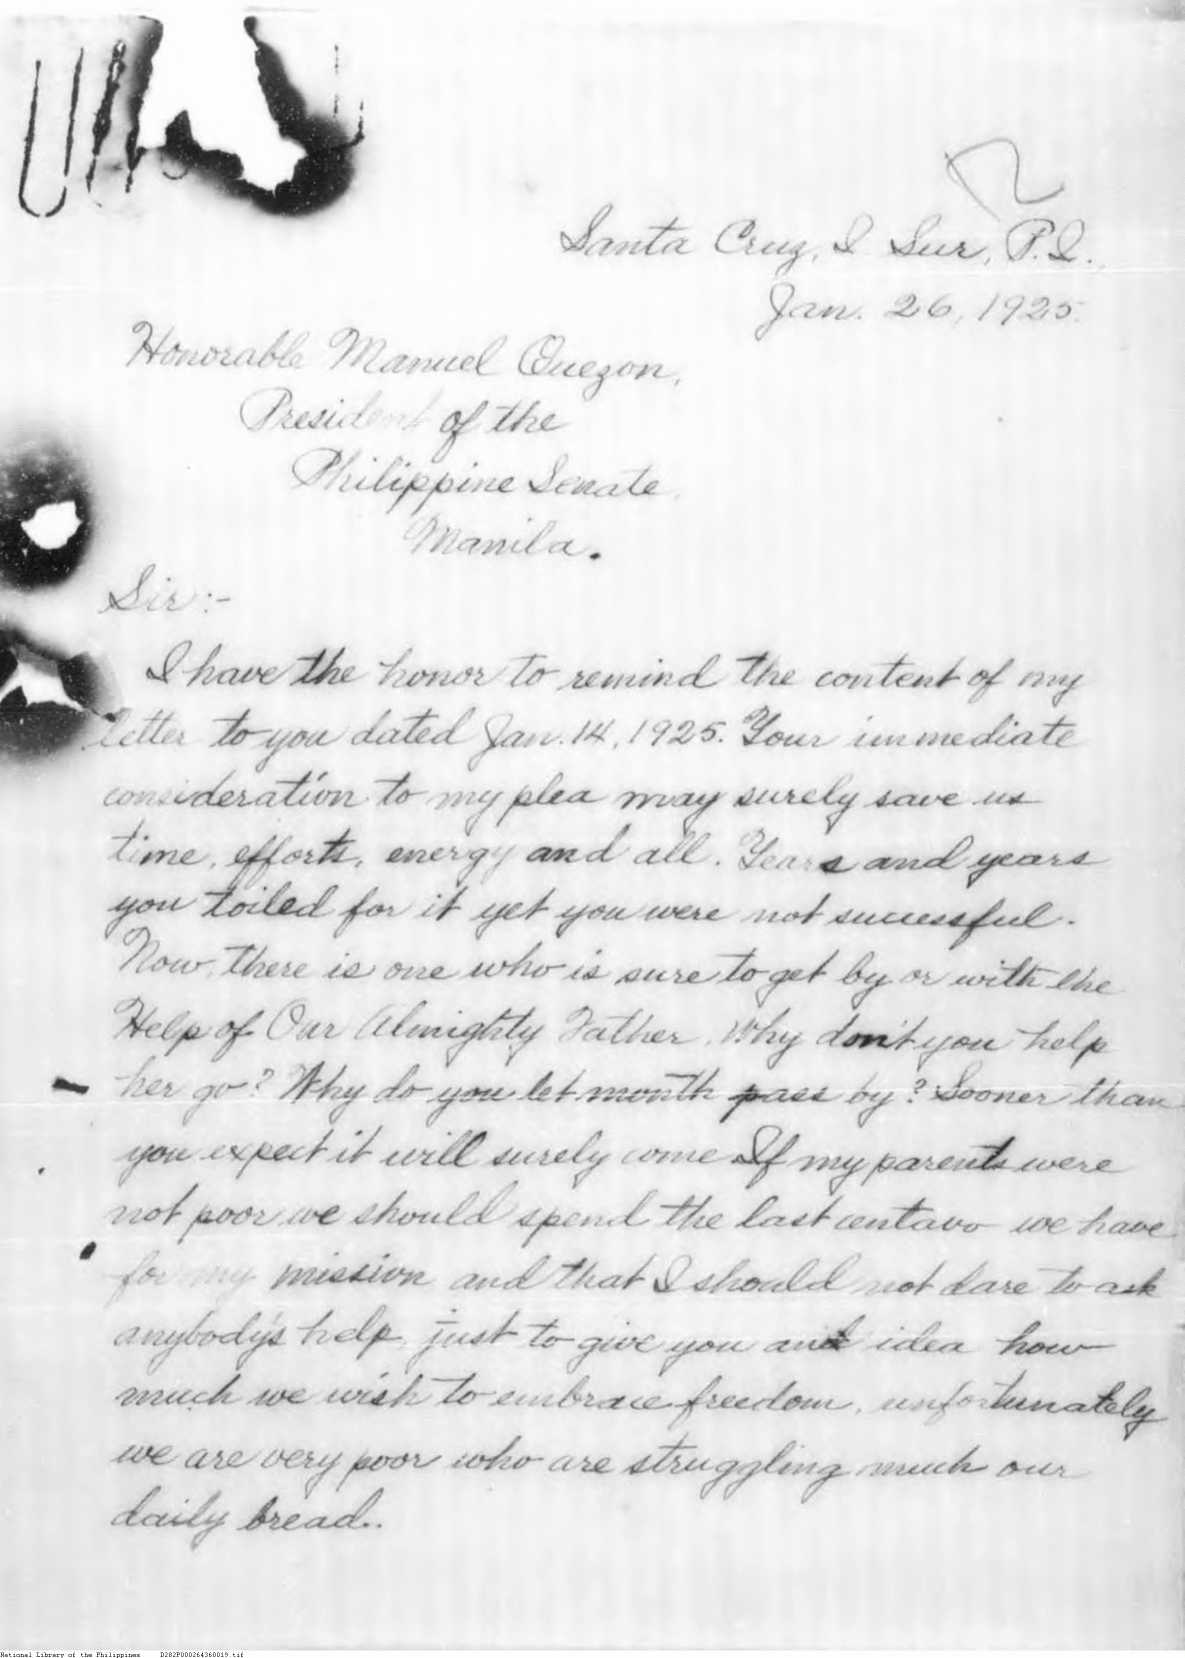 Santa Cruz, I Sur, P.I.
Jan. 26, 1925.
Honorable Manuel Quezon,
President of the
Philippine Senate,
Manila.
Sir:-
I have the honor to remind the content of my
letter to you dated Jan. 14, 1925. Your immediate
consideration to my plea may surely save us
time, efforts, energy and all. Years and years
you toiled for it yet you were not successful.
Now, there is one who is sure to get by or with the
Help of Our Almighty Father. Why don't you help
her go? Why do you let month pass by? Sooner than
you expect it will surely come. If my parents were
not poor we should spend the last centavo we have
for my mission and that I should not dare to ask
anybody's help, just to give you and idea how
much we wish to embrace freedom, unfortunately
we are very poor who are struggling much our
daily bread.
National Library of the Philippines D282P000264360019.tif